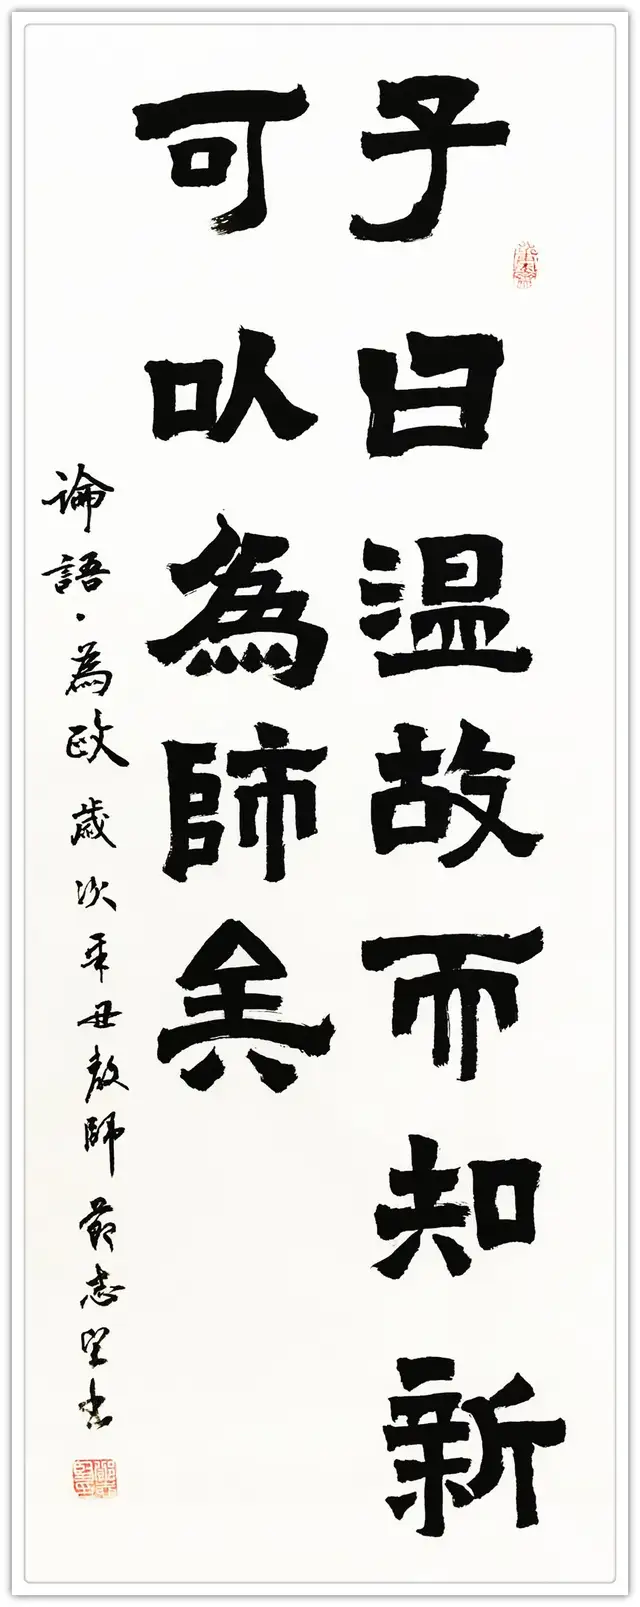 子曰温故而知新
可以為師矣
論語·為政 歲次辛丑教師節志書